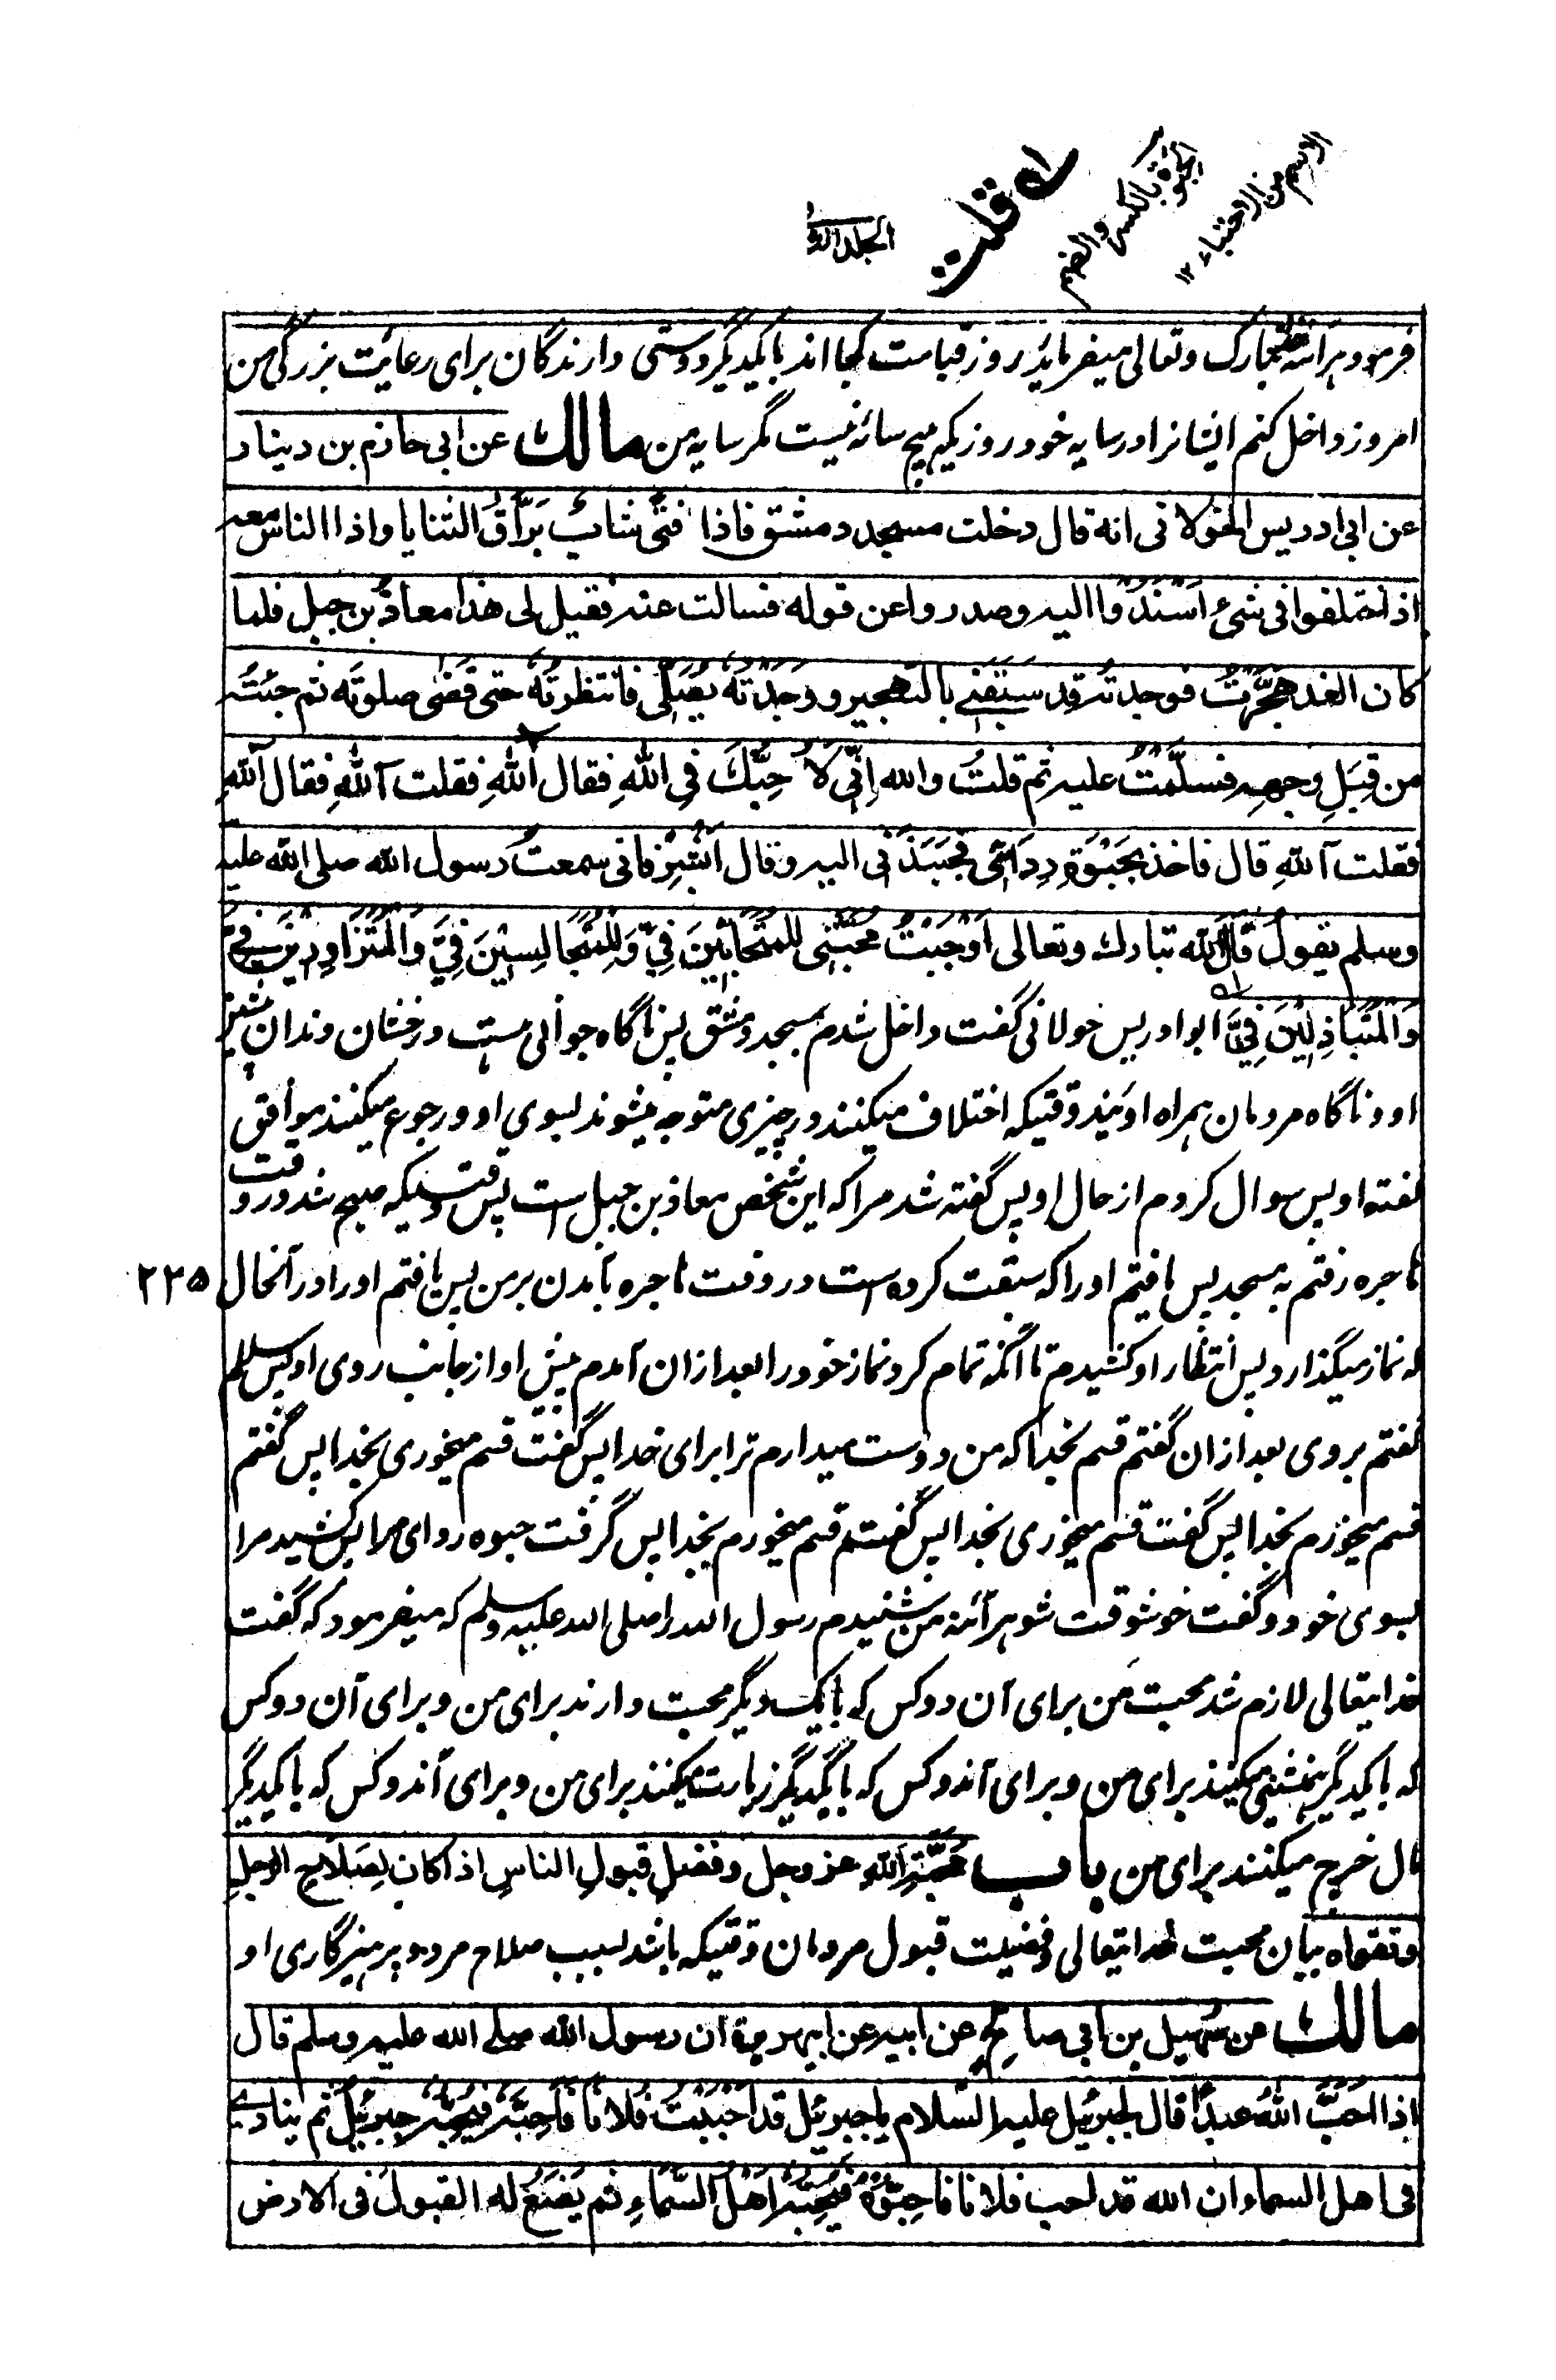 الاسم من الاحتباء ١٢
الحبوة بالكسر والضم
له قلت
المجلد الاول
فرمود هرآئنه خدا تبارک وتعالی میفرماید روز قیامت کجا اند بایکدیگر دوستی دارندگان برای رعایت بزرگی من
امروز داخل کنم ایشانرا در سایه خود روزیکه هیچ سائه نیست مگر سایه من مالك عن ابی حازم بن دینار
عن ابی ادریس الخولانی انه قال دخلت مسجد دمشق فاذا فتًى شابٌ بَرَّاقُ الثنایا واذا الناس معه
اذا اختلفوا فی شیء اَسْنَدُوا الیه وصدروا عن قوله فسالت عنه فقیل لی هذا معاذ بن جبل فلما
کان الغد هَجَّرْتُ فوجدته قد سَبَقَنِی بالتهجیر ووَجَدْتُهُ یُصَلِّی فانتظرتُهُ حتى قَضٰى صلوتَه ثم جئتُه
من قِبَلِ وجهِه فسلَّمْتُ علیه ثم قلتُ والله اِنّی لاُحِبُّكَ فِی اللهِ فقال آللهِ فقلت آللهِ فقال آللهِ
فقلت آللهِ قال فاخذ بحَبْوَةِ رِدَائِی فجَبَذَنی الیه وقال اَبْشِرْ فانی سمعتُ رسول الله صلی الله علیه
وسلم یقولُ قال الله تبارك وتعالى اَوْجَبْتُ مَحَبَّتِی للمُتَحَابِّینَ فِیَّ وَلِلْمُتَجَالِسِیْنَ فِیَّ وَالْمُتَزَاوِرِیْنَ فِیَّ
وَالْمُتَبَاذِلِیْنَ فِیَّ ابو ادریس خولانی گفت داخل شدم بمسجد دمشق پس ناگاه جوانی هست درخشان دندان پیشین
او و ناگاه مردمان همراه اویند وقتیکه اختلاف میکنند در چیزی متوجه میشوند بسوی او و رجوع میکنند موافق
گفته او پس سوال کردم از حال او پس گفته شد مرا که این شخص معاذ بن جبل است پس وقتیکه صبح شد در وقت
هاجره رفتم به مسجد پس یافتم او را که سبقت کرده است در وقت هاجره بآمدن بر من پس یافتم او را در آنحال
٢٢٥
که نماز میگذارد پس انتظار او کشیدم تا آنکه تمام کرد نماز خود را بعد ازان آمدم پیش او از جانب روی او پس سلام
گفتم بروی بعد ازان گفتم قسم بخدا که من دوست میدارم ترا برای خدا پس گفت قسم میخوری بخدا پس گفتم
قسم میخورم بخدا پس گفت قسم میخوری بخدا پس گفتم قسم میخورم بخدا پس گرفت حبوه ردای مرا پس کشید مرا
بسوی خود و گفت خوشوقت شو هرآئنه من شنیدم رسول الله را صلی الله علیه وسلم که میفرمود که گفت
خدایتعالی لازم شد محبت من برای آن دو کس که بایک دیگر محبت دارند برای من و برای آن دو کس
که بایکدیگر همنشینی میکنند برای من و برای آندوکس که بایکدیگر زیارت میکنند برای من و برای آندوکس که بایکدیگر
مال خرچ میکنند برای من باب مَحَبَّةِ اللهِ عز وجل وفضلِ قبولِ الناسِ اذا کان لِصَلاحِ الرجلِ
وتقواه بیان محبت خدایتعالی وفضیلت قبول مردمان وقتیکه باشد بسبب صلاح مرد و پرهیزگاری او
مالك عن سُهیل بن ابی صالحٍ عن ابیه عن ابی هریرة ان رسول الله صلی الله علیه وسلم قال
اذا احَبَّ اللهُ عبدًا قال لجبرئیل علیه السلام یا جبرئیل قد اَحْبَبْتُ فُلانًا فَاَحِبَّهُ فیُحِبُّه جبرئیلُ ثم ینادی
فی اهل السماء ان الله قد احب فلانا فاَحِبُّوْهُ فیُحِبُّه اَهْلُ السَّمَاءِ ثم یَضَعُ له القبولَ فی الارض